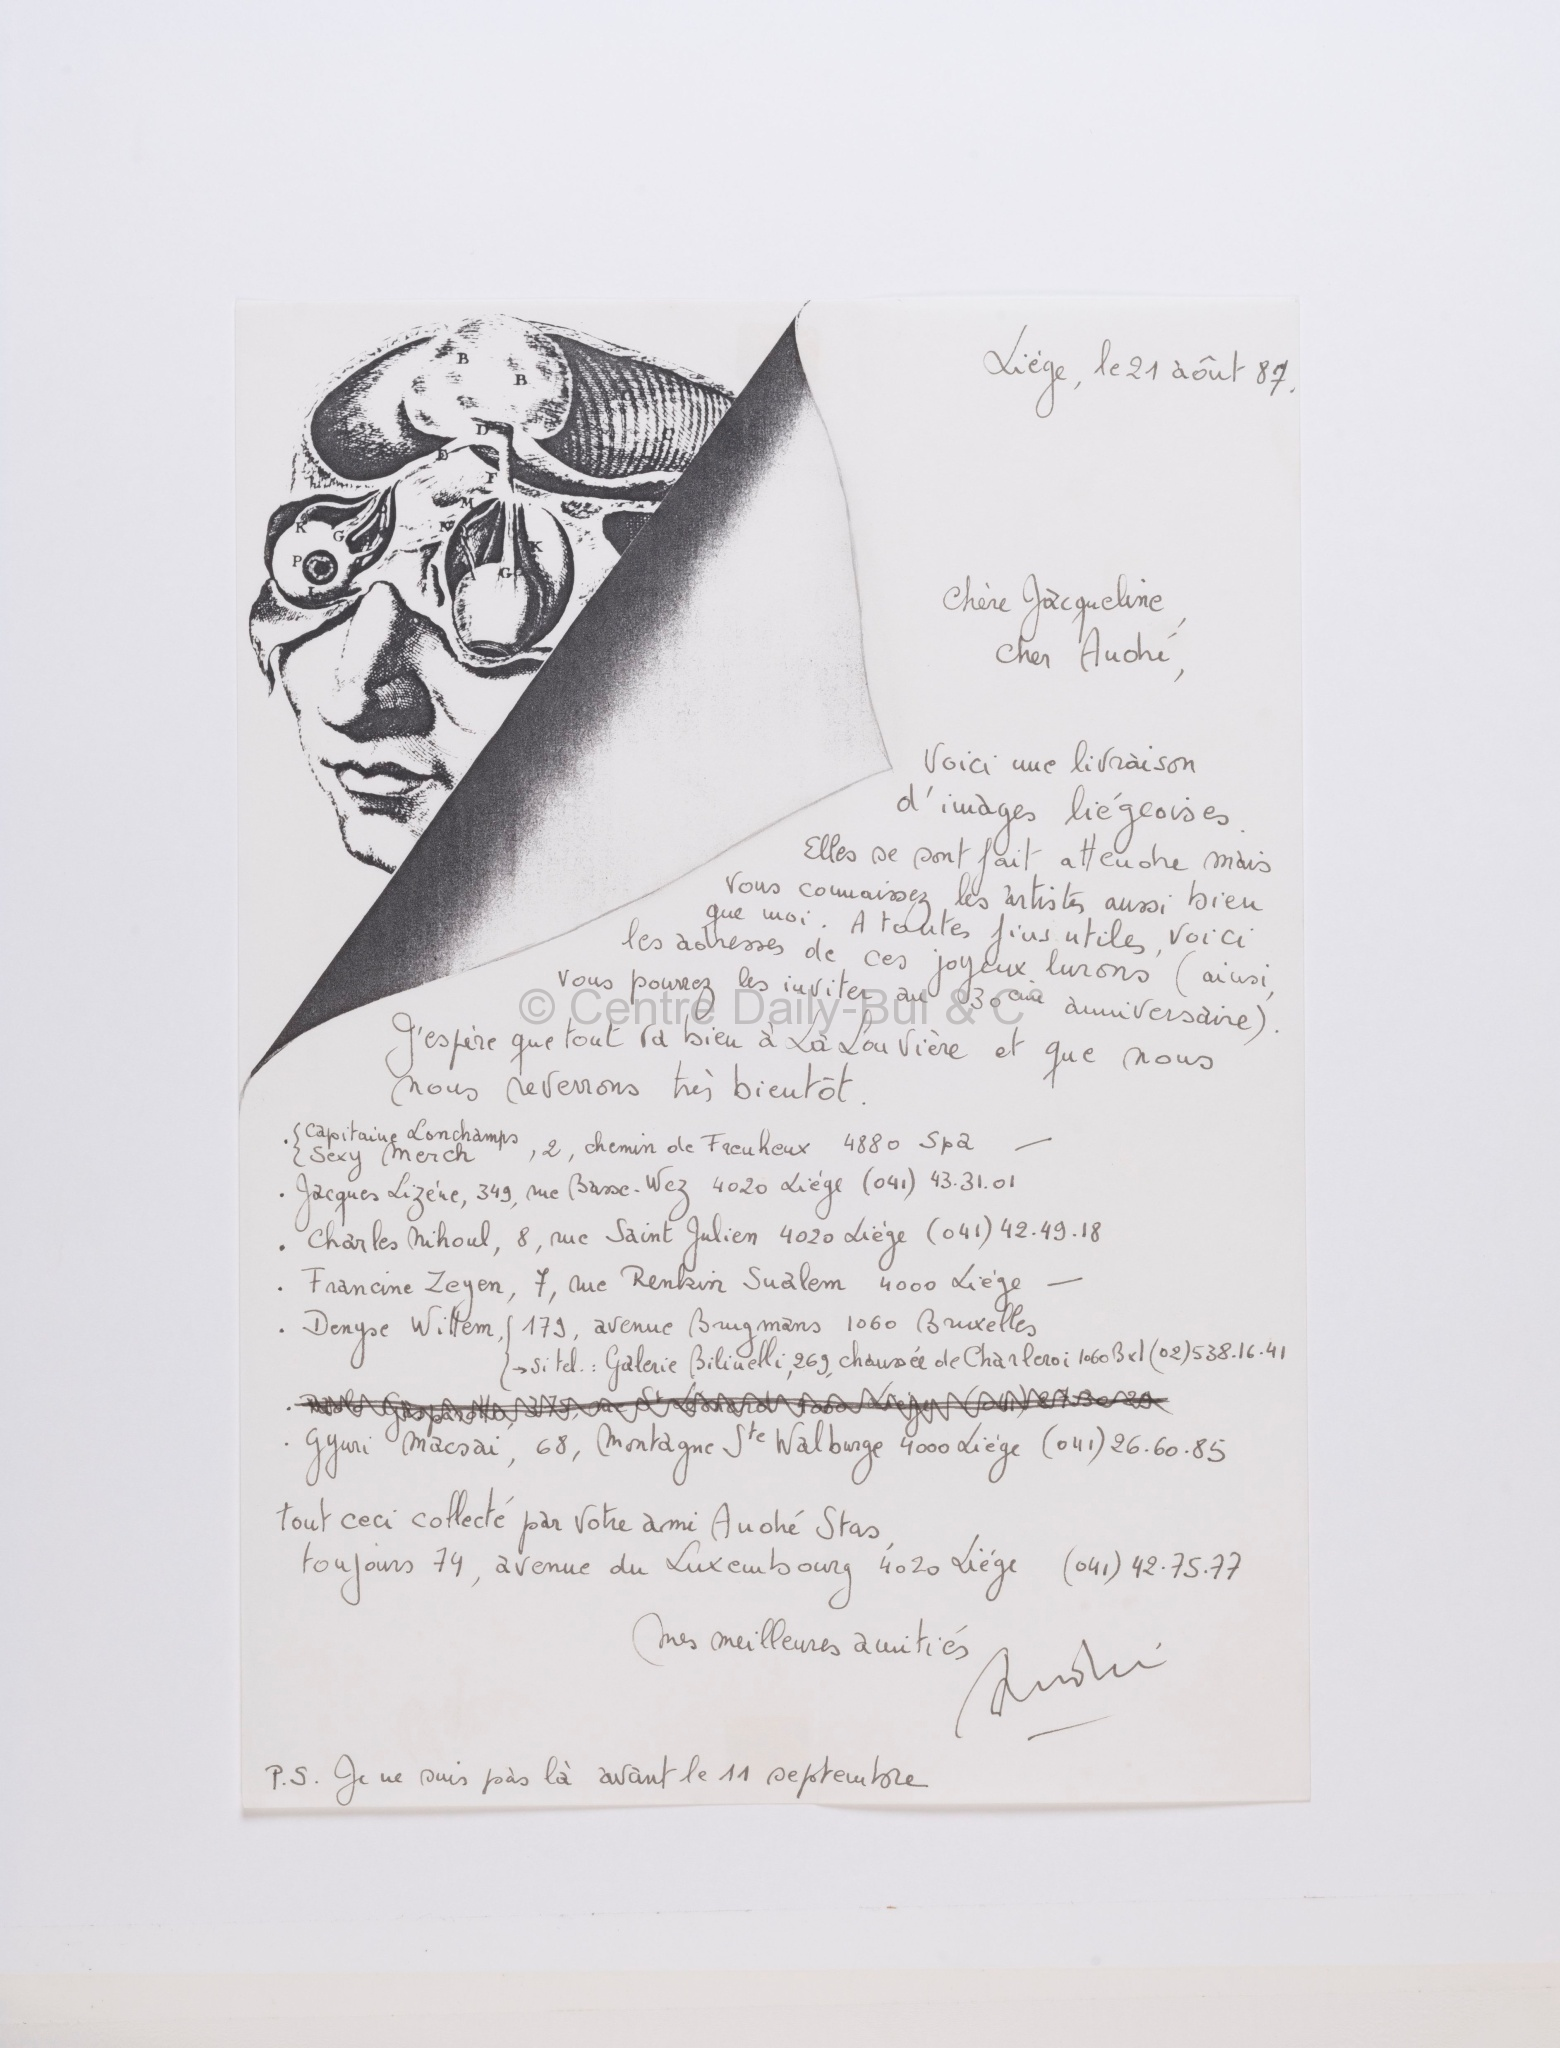 Liége, le 21 août 87.
B
B
D
M
K
K
G
P
G
Chère Jacqueline,
cher André,
Voici une livraison
d'images liégeoises.
Elles se sont fait attendre mais
vous connaissez les artistes aussi bien
que moi. A toutes fins utiles, voici
les adresses de ces joyeux lurons (ainsi,
vous pourrez les inviter au 30ème anniversaire).
© Centre Daily-Bul & C°
J'espère que tout va bien à La Louvière et que nous
nous reverrons très bientôt.
. { Capitaine Lonchamps
{ Sexy Merch , 2, chemin de Freuheux 4880 Spa —
. Jacques Lizène, 349, rue Basse-Wez 4020 Liége (041) 43.31.01
. Charles Nihoul, 8, rue Saint Julien 4020 Liége (041) 42.49.18
. Francine Zeyen, 7, rue Renkin Sualem 4000 Liége —
. Denyse Willem, { 179, avenue Brugmans 1060 Bruxelles
{ → si tel.: Galerie Bilinelli, 269, chaussée de Charleroi 1060 Bxl (02) 538.16.41
. Gyuri Macsai, 68, Montagne Ste Walburge 4000 Liége (041) 26.60.85
tout ceci collecté par votre ami André Stas,
toujours 74, avenue du Luxembourg 4020 Liége (041) 42.75.77
Mes meilleures amitiés
André
P.S. Je ne suis pas là avant le 11 septembre